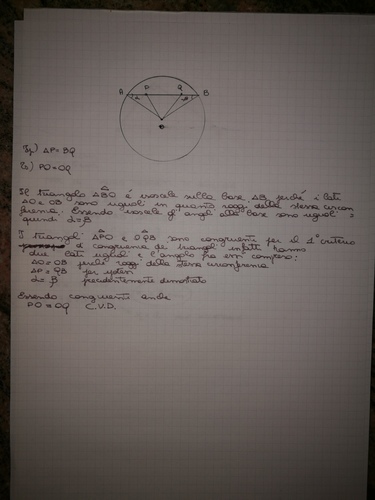 A P Q B
α β
O
Ip) AP = BQ
Ts) PO = OQ
Il triangolo ABO è isoscele sulla base AB perché i lati
AO e OB sono uguali in quanto raggi della stessa circon
ferenza. Essendo isoscele gl'angoli alla base sono uguali e
quindi α = β
I triangoli APO e OQB sono congruenti per il 1° criterio
di congruenza dei triangoli infatti hanno
due lati uguali e l'angolo fra essi compreso:
AO = OB perché raggi della stessa circonferenza
AP = QB per ipotesi
α = β precedentemente dimostrato
Essendo congruenti anche
PO = OQ C.V.D.